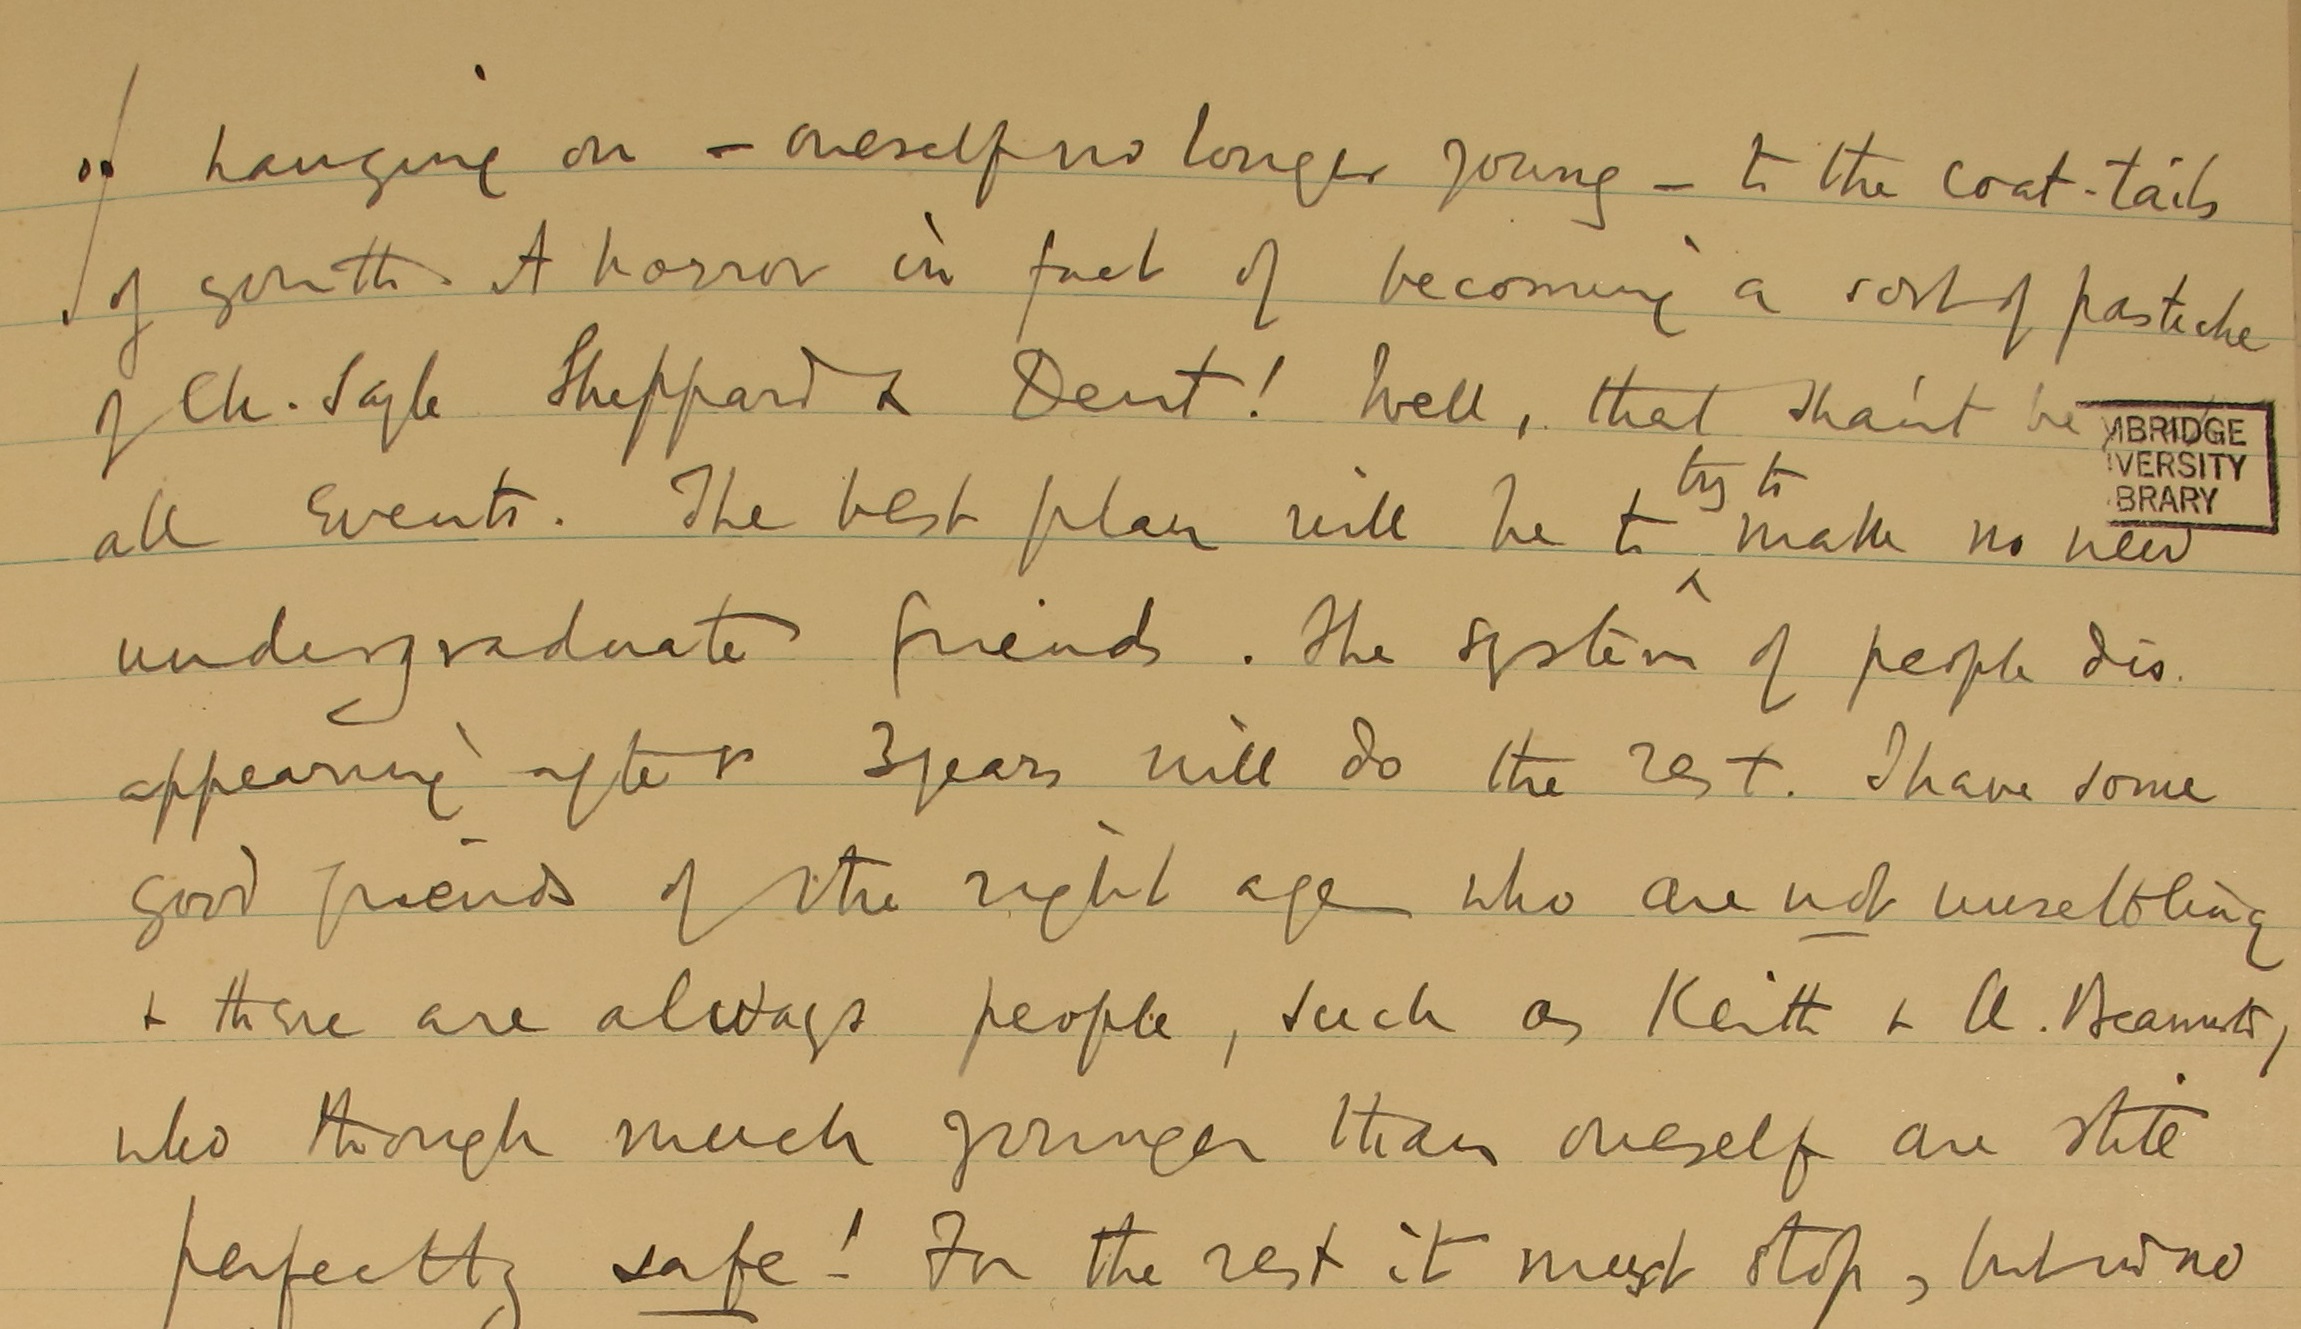 of hanging on - oneself no longer young - to the coat-tails
of youth. A horror in fact of becoming a sort of pastiche
of Ch. Sayle Sheppard & Dent! Well, that shan't be
all events. The best plan will be to try to make no new
undergraduate friends. The system of people dis-
appearing after 3 years will do the rest. I have some
good friends of the right age who are not unsettling
& there are always people, such as Keith & A.
who though much younger than oneself are still
perfectly safe! For the rest it must stop, but
MBRIDGE
IVERSITY
BRARY